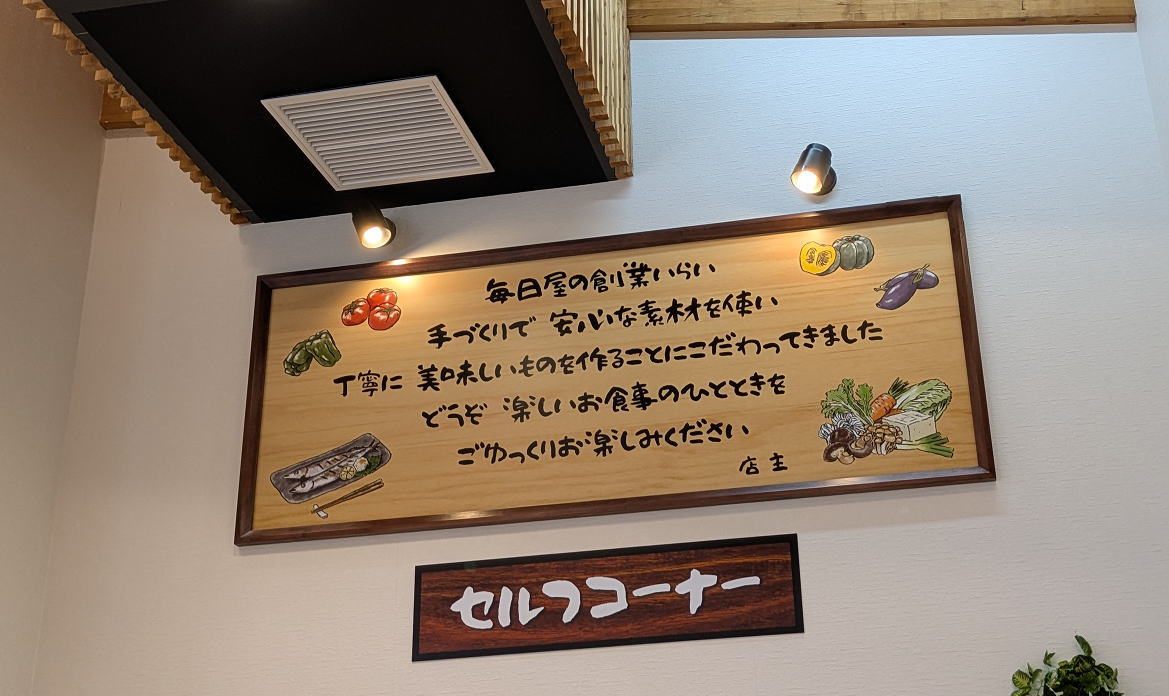 毎日屋の創業いらい
手づくりで 安心な素材を使い
丁寧に 美味しいものを作ることにこだわってきました
どうぞ 楽しいお食事のひとときを
ごゆっくりお楽しみください
店主
セルフコーナー